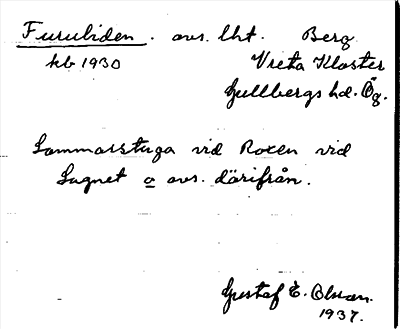 Furuliden. avs. lht. Berg
kb 1930 Vreta Kloster
Gullbergs hd. Ög.
Sommarstuga vid Roxen vid
Lugnet o avs. därifrån.
Gustaf E. Olsson.
1937.